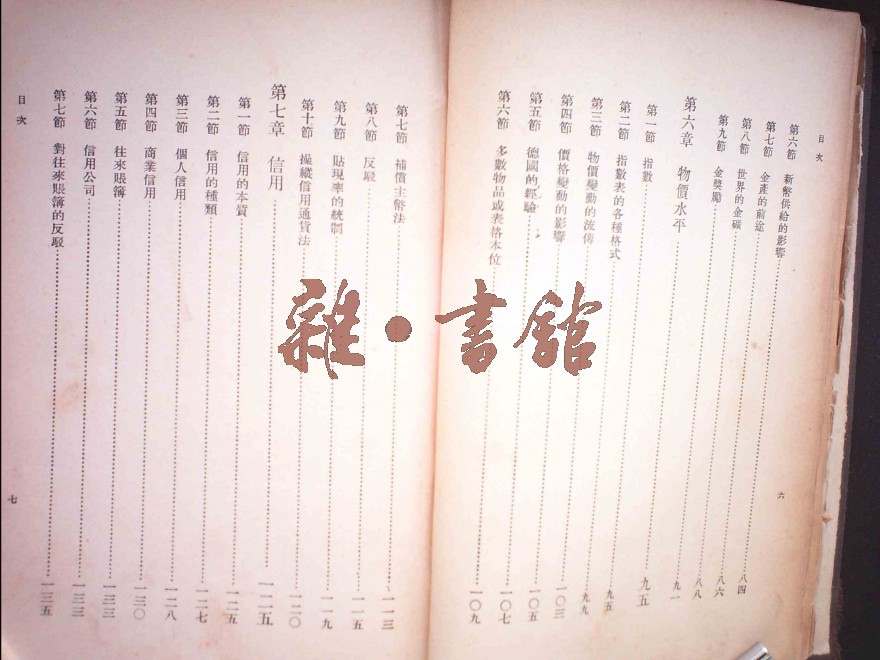 目次
第六節 新幣供給的影響 八四
第七節 金產的前途 八六
第八節 世界的金礦 八八
第九節 金獎勵 九一
第六章 物價水平 九五
第一節 指數 九五
第二節 指數表的各種格式 九九
第三節 物價變動的流傳 一〇三
第四節 價格變動的影響 一〇五
第五節 德國的經驗 一〇七
第六節 多數物品或表格本位 一〇九
六
第七節 補償主幣法 一一三
第八節 反駁 一一五
第九節 貼現率的統制 一一九
第十節 操縱信用通貨法 一二〇
第七章 信用 一二五
第一節 信用的本質 一二五
第二節 信用的種類 一二七
第三節 個人信用 一二八
第四節 商業信用 一三〇
第五節 往來賬簿 一三三
第六節 信用公司 一三三
第七節 對往來賬簿的反駁 一三五
目次
七
雜·書館